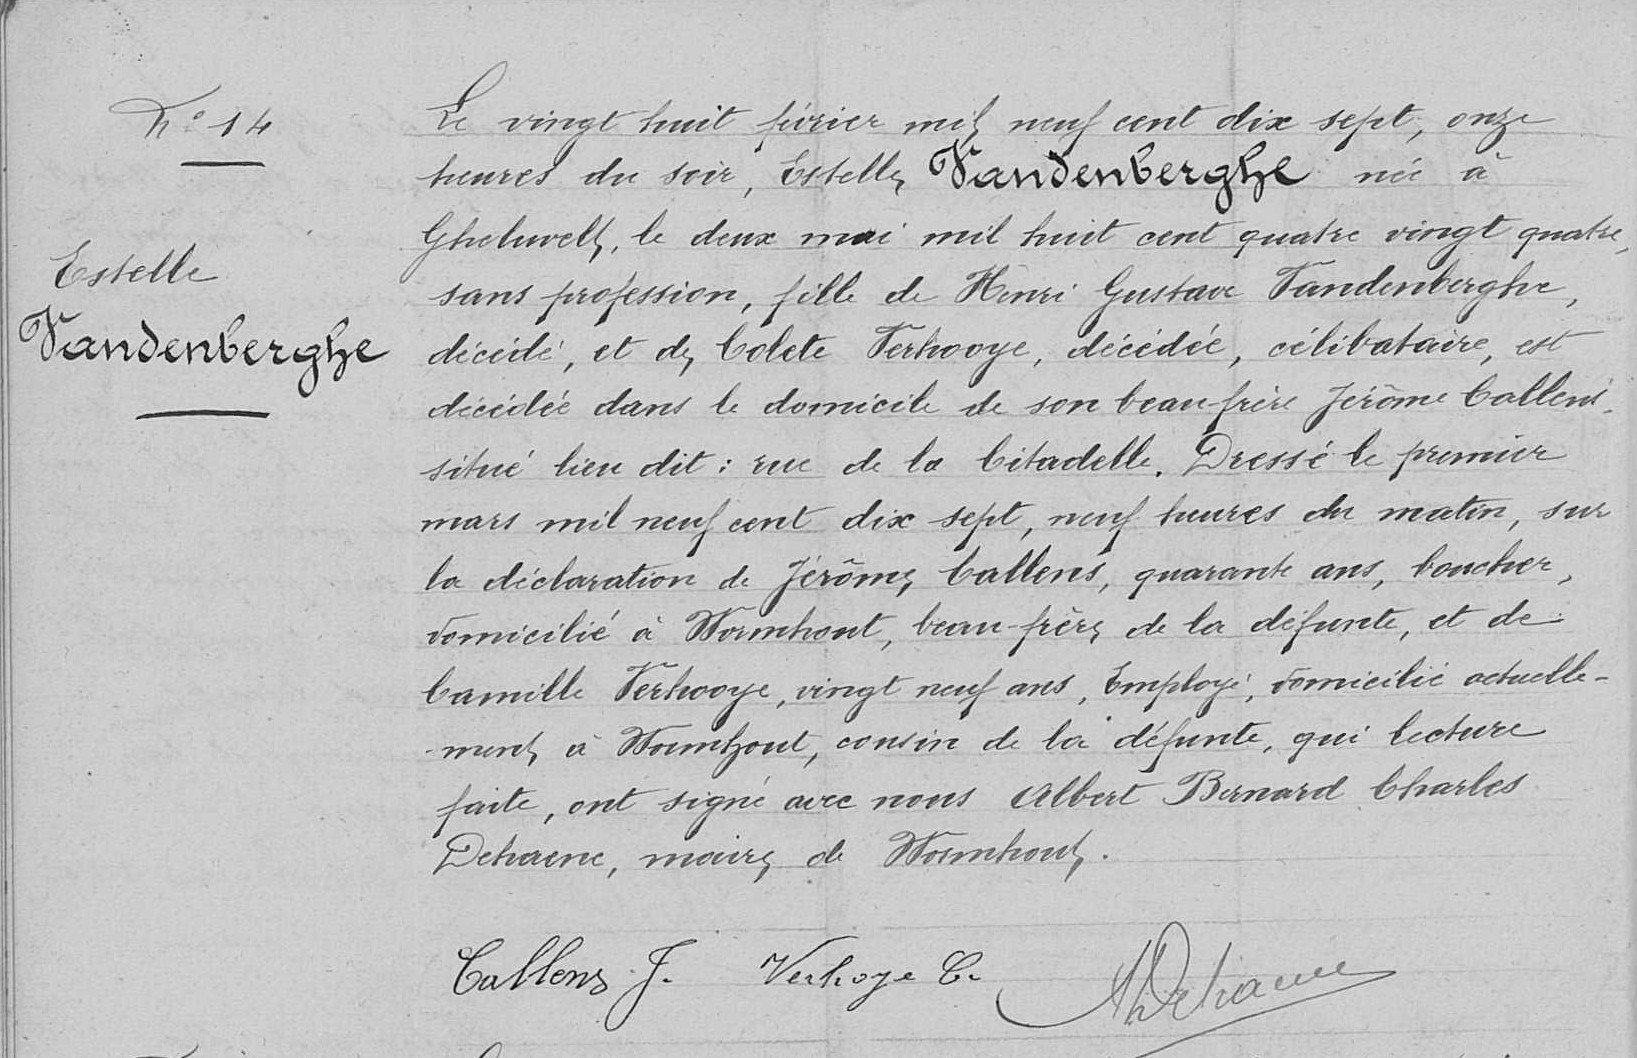 N° 14
Estelle
Vandenberghe
Le vingt huit février mil neuf cent dix sept, onze
heures du soir, Estelle Vandenberghe née à
Gheluvelt, le deux mai mil huit cent quatre vingt quatre,
sans profession, fille de Henri Gustave Vandenberghe,
décédé, et de Colete Verhooye, décédée, célibataire, est
décédée dans le domicile de son beau-frère Jérôme Callens,
situé lieu dit : rue de la Citadelle. Dressé le premier
mars mil neuf cent dix sept, neuf heures du matin, sur
la déclaration de Jérôme Callens, quarante ans, boucher,
domicilié à Wormhout, beau-frère de la défunte, et de
Camille Verhooye, vingt neuf ans, Employé, domicilié actuelle-
-ment à Wormhout, cousin de la défunte, qui lecture
faite, ont signé avec nous Albert Bernard Charles
Dehaene, maire de Wormhout.
Callens J. Verhoye C. ADehaene